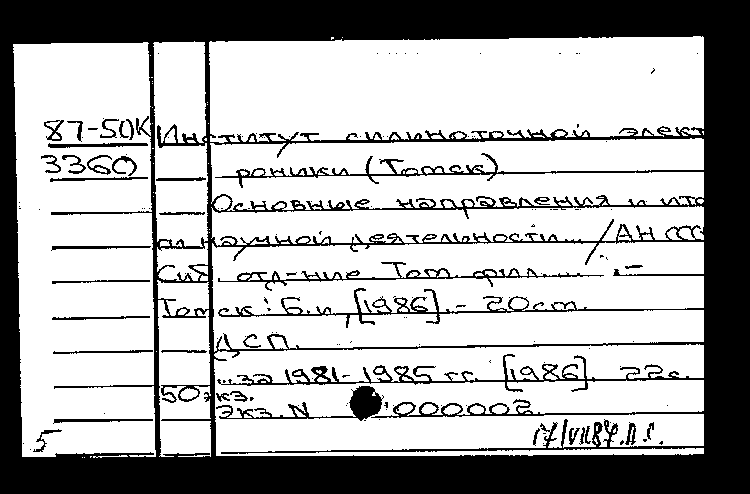 87-50К Институт сильноточной элект
3360 роники (Томск).
Основные направления и ито
ги научной деятельности... / АН ССС
Сиб. отд-ние. Том. фил.... . –
Томск : Б.и, [1986]. – 20 cm.
ДСП.
...за 1981-1985 гг. [1986]. 22с.
50 экз.
Экз. N 000002.
5 17/VII87.